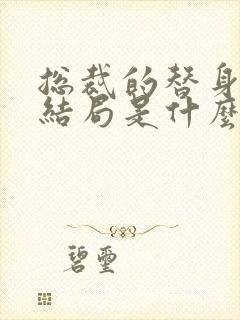 総裁的替身
結局是什麼
碧璽